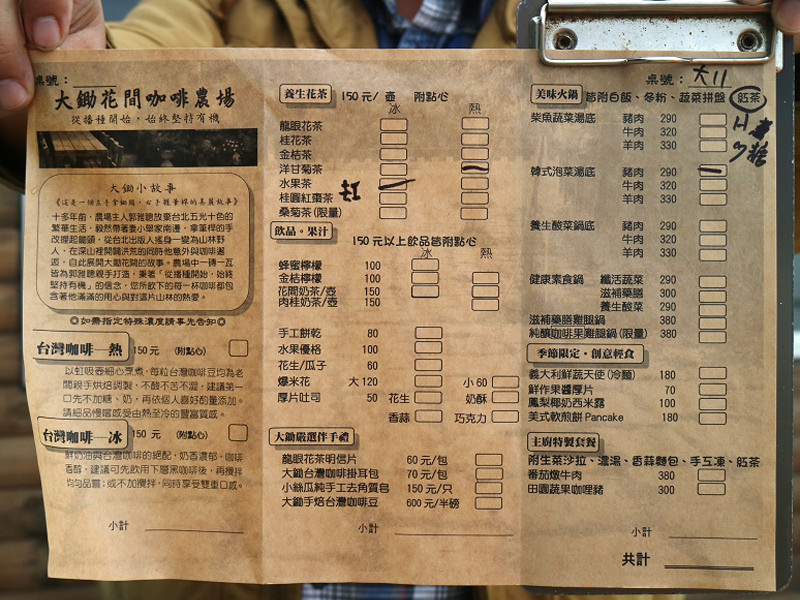 桌號：
大鋤花間咖啡農場
從播種開始，始終堅持有機
大鋤小故事
《這是一個左手拿鋤頭，右手握筆桿的真實故事》
十多年前，農場主人郭雅聰放棄台北五光十色的
繁華生活，毅然帶著妻小舉家南遷，拿筆桿的手
改握起鋤頭，從台北出版人搖身一變為山林野
人，在深山裡開闢洪荒的同時他意外與咖啡邂
逅，自此展開大鋤花開的故事。農場中一磚一瓦
皆為郭雅聰親手打造，秉著「從播種開始，始終
堅持有機」的信念，您所飲下的每一杯咖啡都包
含著他滿滿的用心與對這片山林的熱愛。
◎如需指定特殊濃度請事先告知◎
台灣咖啡—熱 150元 (附點心)
以虹吸壺細心烹煮，每粒台灣咖啡豆均為老
闆親手烘焙調製，不酸不苦不澀，建議第一
口先不加糖、奶，再依個人喜好酌量添加。
請細品慢嚐感受由熱至冷的豐富質感。
台灣咖啡—冰 150元 (附點心)
鮮奶油與台灣咖啡的絕配，奶香濃郁，咖啡
香醇，建議可先飲用下層黑咖啡後，再攪拌
均勻品嘗；或不加攪拌，同時享受雙重口感。
小計
養生花茶 150元/壺 附點心
冰 熱
龍眼花茶
桂花茶
金桔茶
洋甘菊茶
水果茶
桂圓紅棗茶
桑菊茶(限量)
飲品。果汁
150元以上飲品皆附點心
冰 熱
蜂蜜檸檬 100
金桔檸檬 100
花間奶茶/壺 150
肉桂奶茶/壺 150
手工餅乾 80
水果優格 100
花生/瓜子 60
爆米花 大120 小60
厚片吐司 50 花生 奶酥
香蒜 巧克力
大鋤嚴選伴手禮
龍眼花茶明信片 60元/包
大鋤台灣咖啡掛耳包 70元/包
小絲瓜純手工去角質皂 150元/只
大鋤手焙台灣咖啡豆 600元/半磅
小計
桌號：大11
美味火鍋 皆附白飯、冬粉、蔬菜拼盤 紅茶
柴魚蔬菜湯底 豬肉 290
牛肉 320
羊肉 330
韓式泡菜湯底 豬肉 290
牛肉 320
羊肉 330
養生酸菜鍋底 豬肉 290
牛肉 320
羊肉 330
健康素食鍋 纖活蔬菜 290
滋補藥膳 300
養生酸菜 290
滋補藥膳雞腿鍋 380
純釀咖啡果雞腿鍋(限量) 380
季節限定・創意輕食
義大利鮮蔬天使(冷麵) 180
鮮作果醬厚片 70
鳳梨椰奶西米露 100
美式軟煎餅Pancake 180
主廚特製套餐
附生菜沙拉、濃湯、香蒜麵包、手工凍、紅茶
番茄燉牛肉 380
田園蔬果咖哩豬 300
小計
共計